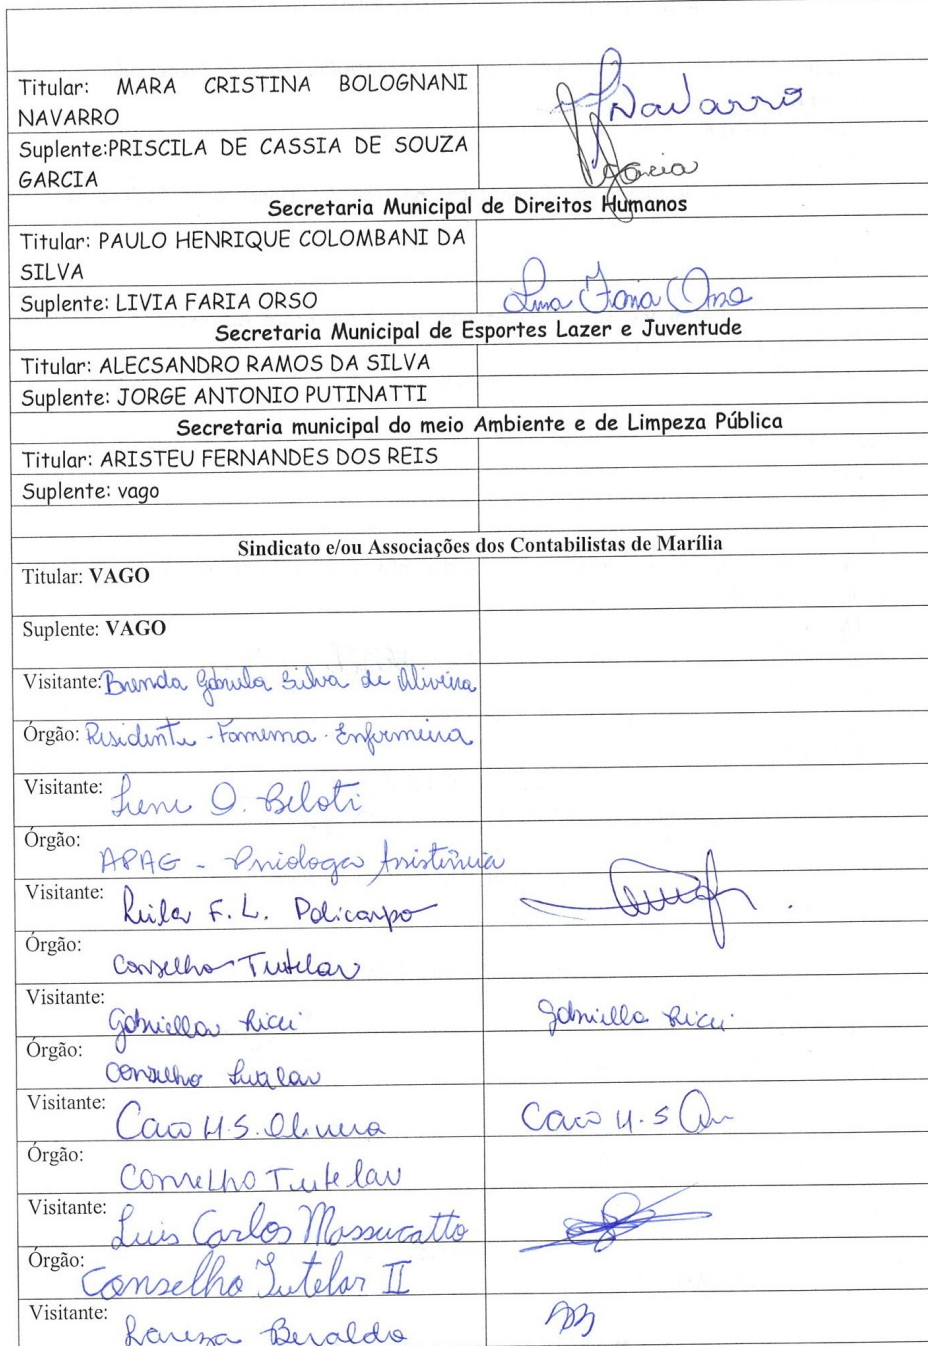 Titular: MARA CRISTINA BOLOGNANI
NAVARRO
Navarro
Suplente:PRISCILA DE CASSIA DE SOUZA
GARCIA
Garcia
Secretaria Municipal de Direitos Humanos
Titular: PAULO HENRIQUE COLOMBANI DA
SILVA
Suplente: LIVIA FARIA ORSO
Livia Faria Orso
Secretaria Municipal de Esportes Lazer e Juventude
Titular: ALECSANDRO RAMOS DA SILVA
Suplente: JORGE ANTONIO PUTINATTI
Secretaria municipal do meio Ambiente e de Limpeza Pública
Titular: ARISTEU FERNANDES DOS REIS
Suplente: vago
Sindicato e/ou Associações dos Contabilistas de Marília
Titular: VAGO
Suplente: VAGO
Visitante: Brenda Gabriela Silva de Oliveira
Órgão: Residente - Famema - Enfermeira
Visitante: Irene O. Beloti
Órgão:
APAG - Psicologa
Visitante: F. L. Policarpo
Órgão:
Conselho Tutelar
Visitante:
Gabriella Ricci Gabriella Ricci
Órgão:
Conselho Tutelar
Visitante:
Caio H.S. Oliveira Caio H.S
Órgão:
Conselho Tutelar
Visitante:
Luis Carlos Massucatto
Órgão:
Conselho Tutelar II
Visitante:
Beraldo